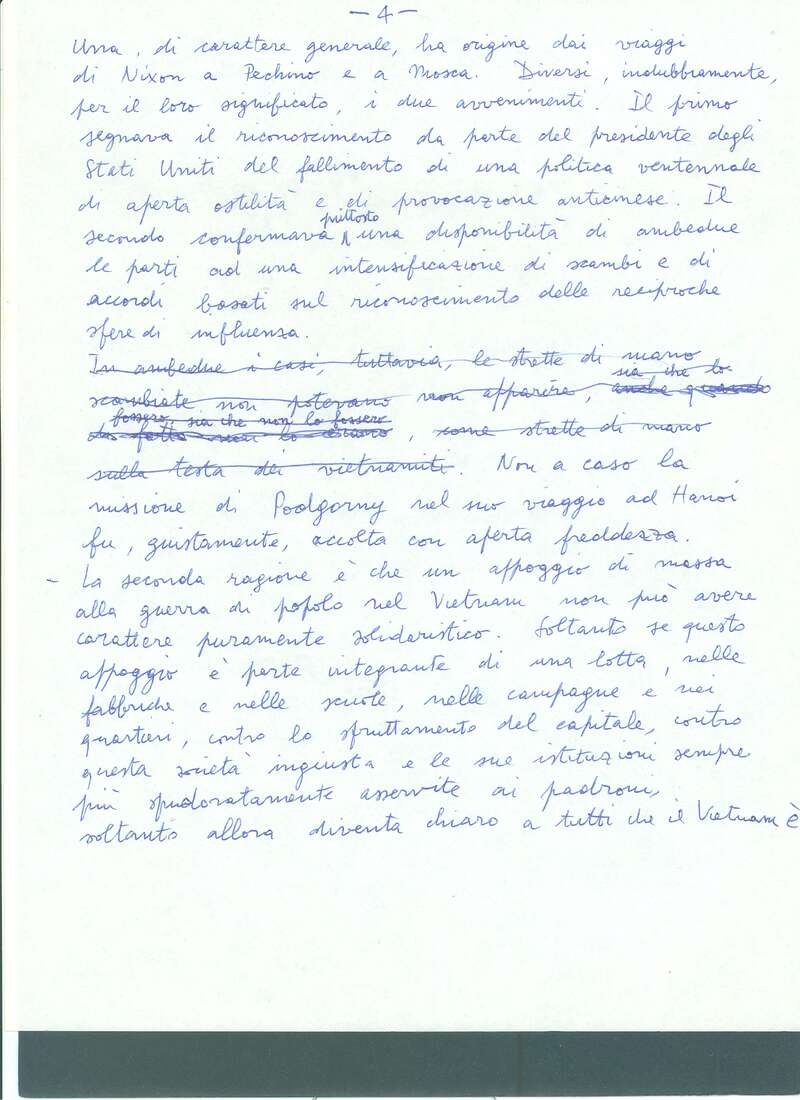 - 4 -
Una, di carattere generale, ha origine dai viaggi
di Nixon a Pechino e a Mosca. Diversi, indubbiamente,
per il loro significato, i due avvenimenti. Il primo
segnava il riconoscimento da parte del presidente degli
Stati Uniti del fallimento di una politica ventennale
di aperta ostilità e di provocazione anticinese. Il
piuttosto
secondo confermava una disponibilità di ambedue
le parti ad una intensificazione di scambi e di
accordi basati sul riconoscimento delle reciproche
sfere di influenza.
In ambedue i casi, tuttavia, le strette di mano
sia che lo
scambiate non potevano non apparire, anche quando
fossero, sia che non lo fossero
di fatto non lo erano, come strette di mano
sulla testa dei vietnamiti. Non a caso la
missione di Podgorny nel suo viaggio ad Hanoi
fu, giustamente, accolta con aperta freddezza.
- La seconda ragione è che un appoggio di massa
alla guerra di popolo nel Vietnam non può avere
carattere puramente solidaristico. Soltanto se questo
appoggio è parte integrante di una lotta, nelle
fabbriche e nelle scuole, nelle campagne e nei
quartieri, contro lo sfruttamento del capitale, contro
questa società ingiusta e le sue istituzioni sempre
più spudoratamente asservite ai padroni,
soltanto allora diventa chiaro a tutti che il Vietnam è